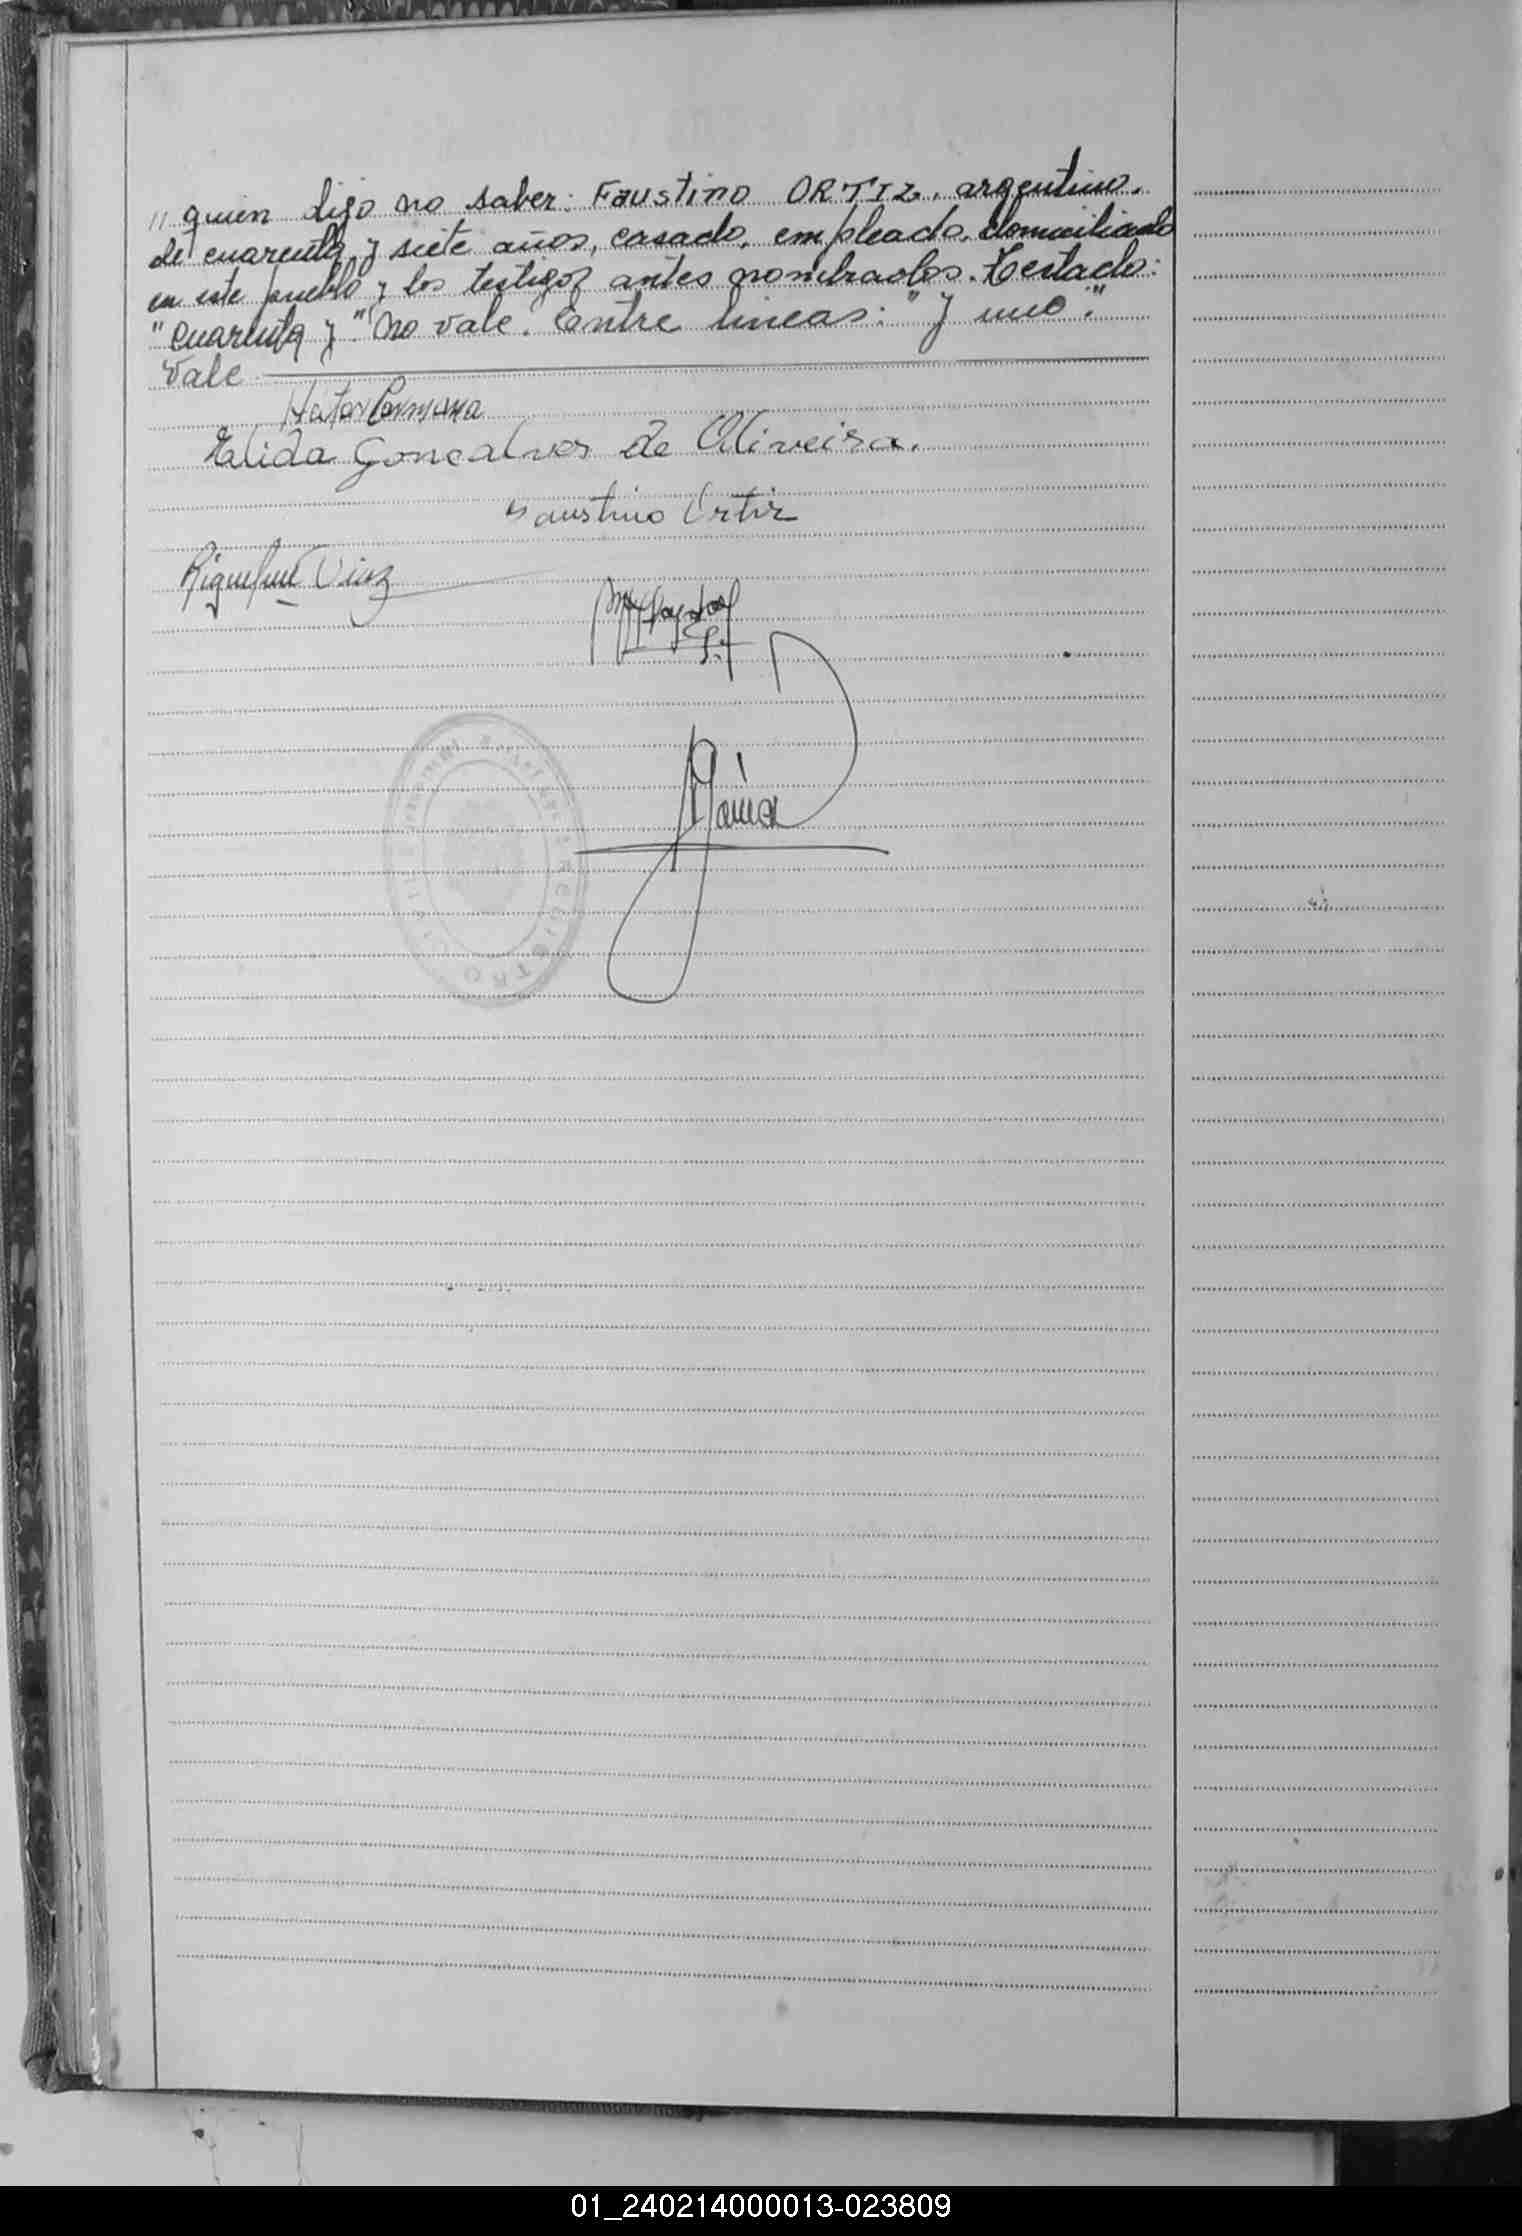 " quien dijo no saber: Faustino ORTIZ, argentino,
de cuarenta y siete años, casado, empleado, domiciliado
en este pueblo y los testigos antes nombrados. Testado:
"cuarenta y" no vale. Entre lineas: "y uno".
Vale
Elida Goncalves de Oliveira.
Faustino Ortiz
Díaz
REGISTRO
01_240214000013-023809